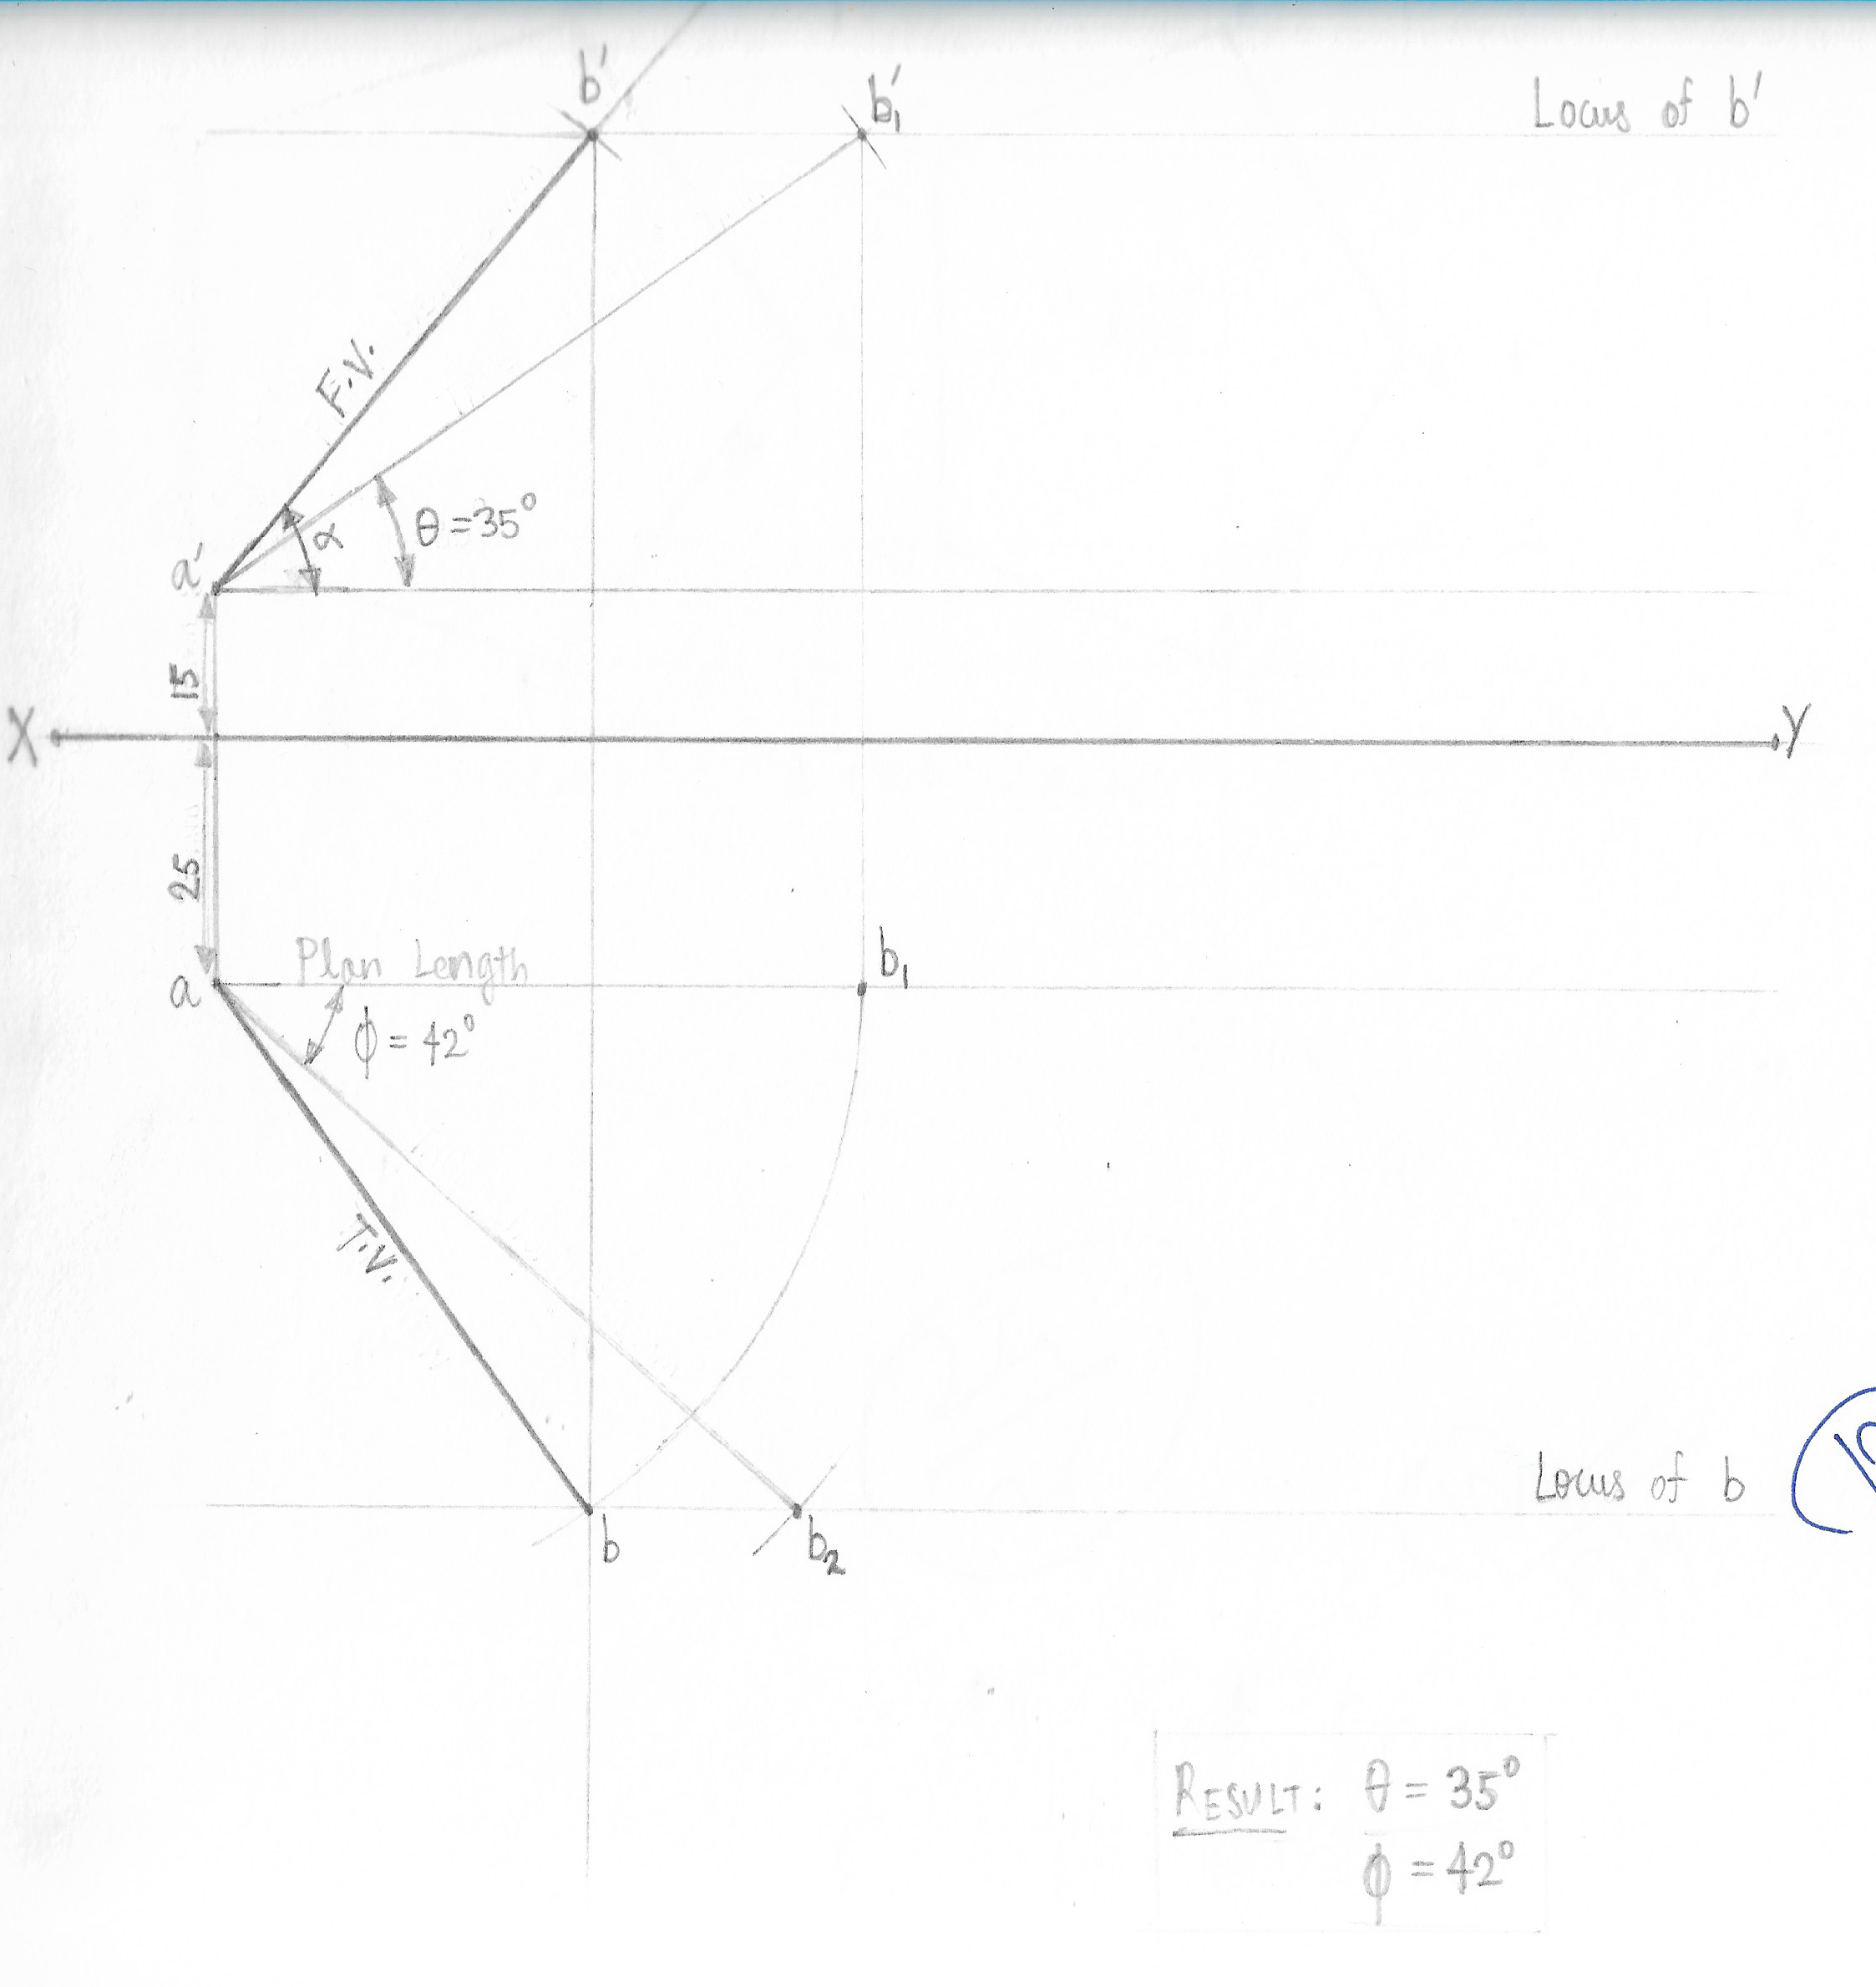 b'
b'₁
Locus of b'
F.V.
α
θ = 35°
a'
15
X
Y
25
Plan Length
b₁
a
ϕ = 42°
T.V.
Locus of b
b
b₂
RESULT: θ = 35°
ϕ = 42°